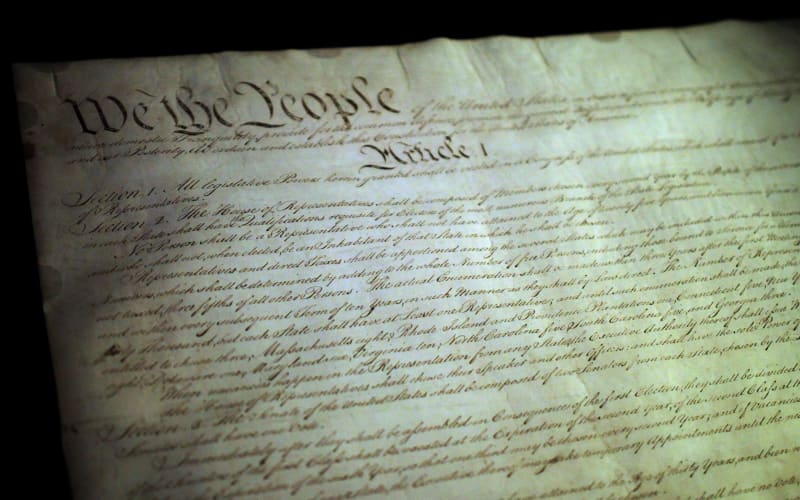 We the People of the United States,
insure domestic Tranquility, provide for the common defence,
and our Posterity, do ordain and establish this Constitution for the United States of America.
Article I
Section. 1. All legislative Powers herein granted shall be vested in a Congress of the United States, which shall consist of a
of Representatives.
Section. 2. The House of Representatives shall be composed of Members chosen every second Year by the People of the several
in each State shall have Qualifications requisite for Electors of the most numerous Branch of the State Legislature.
No Person shall be a Representative who shall not have attained to the Age of twenty five Years,
and who shall not, when elected, be an Inhabitant of that State in which he shall be chosen.
Representatives and direct Taxes shall be apportioned among the several States which may be included within this Union,
Numbers, which shall be determined by adding to the whole Number of free Persons, including those bound to Service for a Term
not taxed, three fifths of all other Persons. The actual Enumeration shall be made within three Years after the first Meeting
and within every subsequent Term of ten Years, in such Manner as they shall by Law direct. The Number of
thirty Thousand, but each State shall have at Least one Representative; and until such enumeration shall be made, the
entitled to chuse three, Massachusetts eight, Rhode Island and Providence Plantations one, Connecticut five, New York
eight, Delaware one, Maryland six, Virginia ten, North Carolina five, South Carolina five, and Georgia three.
When vacancies happen in the Representation from any State, the Executive Authority thereof shall
the House of Representatives shall chuse their Speaker and other Officers; and shall have the sole Power of
Section. 3. The Senate of the United States shall be composed of two Senators from each State, chosen by the
Senator shall have one Vote.
Immediately after they shall be assembled in Consequence of the first Election, they shall be divided
of the Senators of the first Class shall be vacated at the Expiration of the second Year, of the second Class at the
Expiration of the sixth Year, so that one third may be chosen every second Year; and if Vacancies
State, the Executive thereof may make temporary Appointments until the
attained to the Age of thirty Years, and been
shall have no Vote,